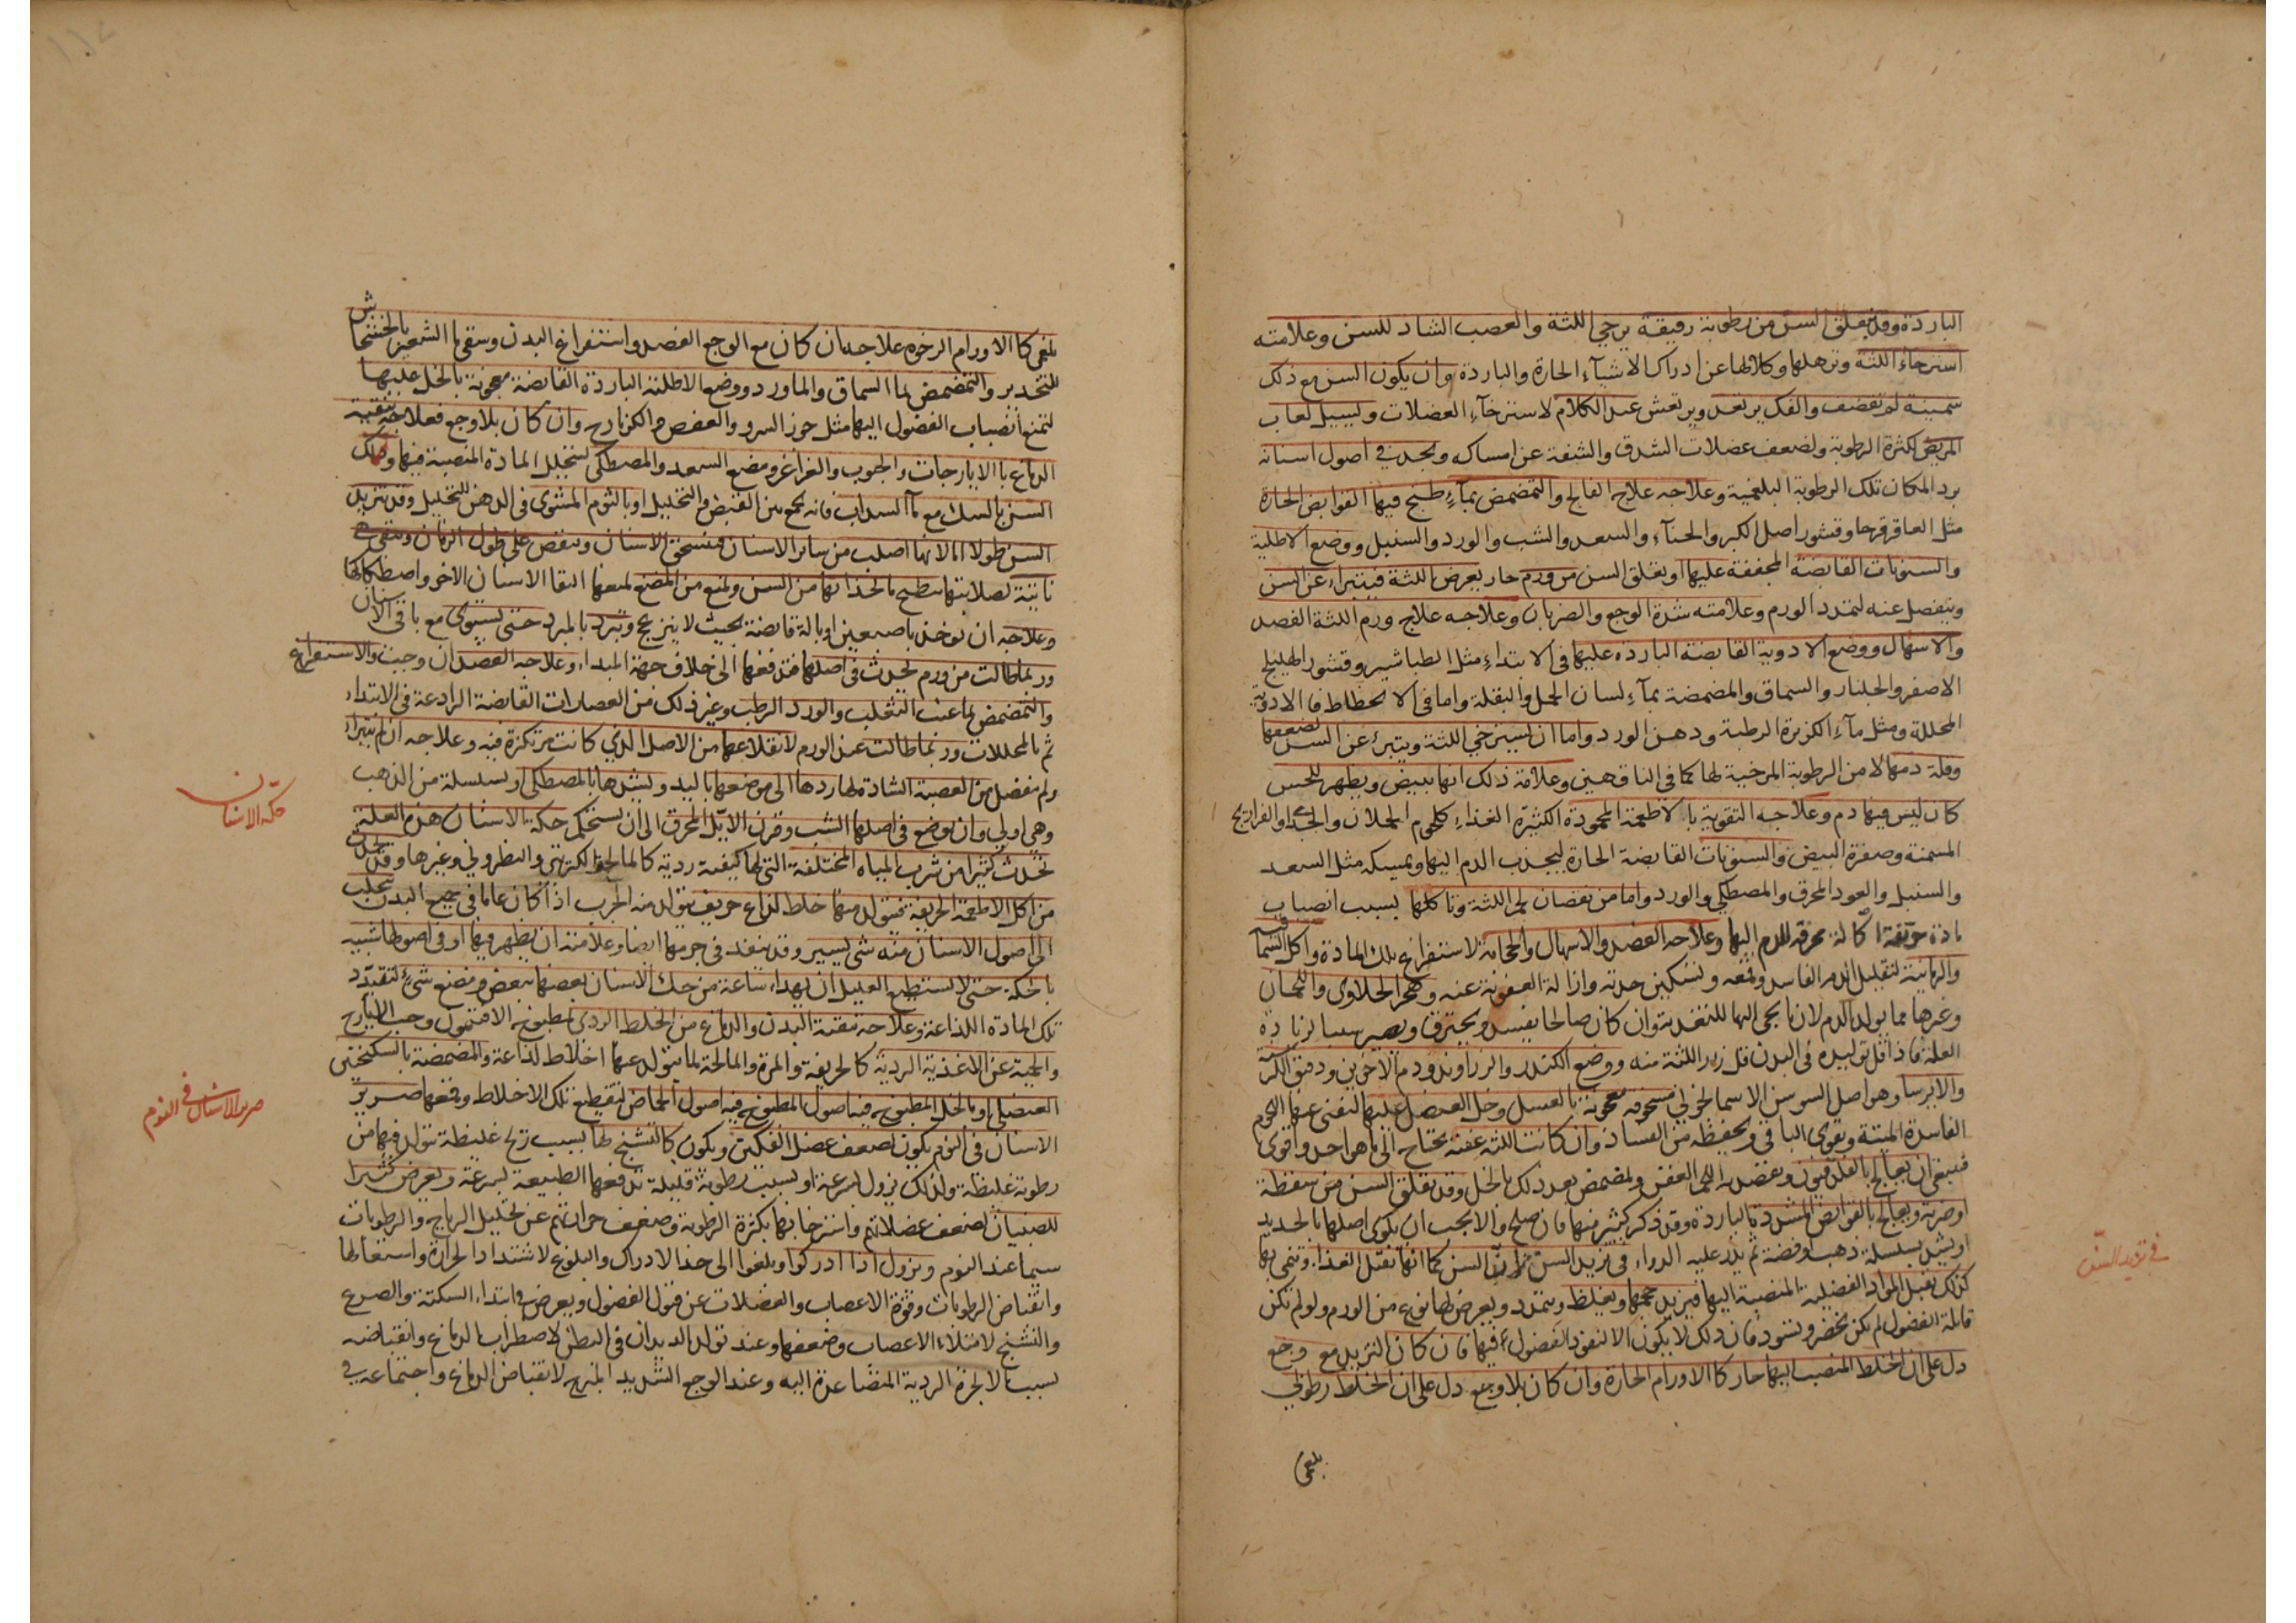 الباردة وقد يتعلق السن من رطوبة رقيقة يرخي اللثة والعصب الشاد للسن وعلامته
استرخاء اللثة وترهلها وكلالها عن ادراك الاشيآء الحارة والباردة وان يكون السن مع ذلك
سمينة لم تقضف والفك يرتعد ويرتعش عند الكلام لاسترخآء العضلات ويسيل لعاب
المريض لكثرة الرطوبة ولضعف عضلات الشدق والشفة عن امساكه ويجد في اصول اسنانه
برد المكان تلك الرطوبة البلغمية وعلاجه علاج الفالج والتمضمض بمآء طبخ فيها القوابض الحارة
مثل العاقرقرحا وقشور اصل الكبر والحنآء والسعد والشب والورد والسنبل ووضع الاطلية
والسنونات القابضة المجففة عليها او يتعلق السن من ورم حار يعرض اللثة فيتبراء عن السن
وينفصل عنه لتمدد الورم وعلامته شدة الوجع والضربان وعلاجه علاج ورم اللثة الفصد
والاسهال ووضع الادوية القابضة الباردة عليها في الابتداء مثل الطباشير وقشور الهليلج
الاصفر والجلنار والسماق والمضمضة بمآء لسان الحمل والبقلة واما في الانحطاط فالادوية
المحللة ومثل مآء الكزبرة الرطبة ودهن الورد واما ان يسترخي اللثة ويتبرئ عن السن لضعفها
وقلة دمها لا من الرطوبة المرخية لها كما في الناقهين وعلامة ذلك انها تبيض ويظهر للحس
كان ليس فيها دم وعلاجه التقوية بالاطعمة المحمودة الكثيرة الغذاء كلحوم الحملان والجدا والفراريج
المسمنة وصفرة البيض والسنونات القابضة الحارة ليجذب الدم اليها ويمسكه مثل السعد
والسنبل والعود المحرق والمصطكى والورد واما من نقصان لحم اللثة وتاكلها بسبب انصباب
مادة حريفة اكالة محرقة للدم اليها وعلاجه الفصد والاسهال والحجامة لاستفراغ تلك المادة واكل السماقية
والرمانية لتقليل الدم الفاسد وقمعه وتسكين حدته وازالة العفونة عنه وهجر الحلاوى واللحمان
وغيرها مما يولد الدم لان ما يجى اليها للتغذية وان كان صالحا يفسد ويحترق ويصير سببا لزيادة
العلة فاذا قل توليده في البدن قل زرر اللثة منه ووضع الكندر والزراوند ودم الاخوين ودقيق الكرسنة
والايرسا وهو اصل السوسن الاسمانجوني مسحوقة معجونة بالعسل وخل العنصل عليها لتفني عنها اللحوم
الفاسدة الميتة ويقوى الباقي ويحفظه من الفساد وان كانت اللثة عفنة يحتاج الى ما هو احد واقوى
فينبغي ان يعالج بالفلدفيون ويفصد العفن ويمضمض بعد ذلك بالخل وقد يتعلق السن من سقطة
او ضربة ويعالج بالقوابض المشددة الباردة وقد ذكر كثير منها فان صلح والا يجب ان يكوى اصلها بالحديد
او يشد بسلسلة ذهب او فضة ثم يذر عليه الدواء في تزيد السن ان السن كما انها تقبل الغذاء وتنمى بها
كذلك تقبل المواد الفضلية المنصبة اليها فيزيد حجمها ويغلظ ويتمدد ويعرض لها نوع من الورم ولو لم تكن
قابلة الفضول لم يكن يخضر ويسود فان ذلك لا يكون الا لنفوذ الفضول فيها فان كان التزيد مع وجع
دل على ان الخلط المنصب اليها حار كالاورام الحارة وان كان بلا وجع دل على ان الخلط رطوبي
بلغمى
في تزيد السن
بلغمى كالاورام الرخوه علاجه ان كان مع الوجع الفصد واستفراغ البدن وسقى ما الشعير بالخشخاش
للتخدير والتمضمض بما السماق والماورد ووضع الاطلية الباردة القابضة معجونة بالخل عليها
لتمنع انصباب الفضول اليها مثل جوز السرو والعفص والكزمازج وان كان بلا وجع فعلاجه تنقية
الدماغ بالايارجات والحبوب والغراغر ومضغ السعد والمصطكى لتحلل المادة المنصبة فيها وذلك
السن بالسك مع مآ السداب فانه يجمع بين القبض والتحليل او بالثوم المشوى في الدهن للتحليل وقد تزيد
السن طولا اما لانها اصلب من سائر الاسنان فتسحق الاسنان وتنقص على طول الزمان وتبقى هي
نابتة لصلابتها بطبيعـ ما لحذائها من السن ولمنع من المضغ لمنعها التقا الاسنان الاخر واصطكاكها
وعلاجه ان توخذ باصبعين او بالة قابضة بحيث لا ينزعج وتبرد بالمبرد حتى يستوى مع باقي الاسنان
وربما طالت من ورم يحدث في اصلها فتدفعها الى خلاف جهة المبداء وعلاجه الفصد ان وجبت والاستفراغ
والتمضمض بما عنب الثعلب والورد الرطب وغير ذلك من العصارات القابضة الرادعة في الابتداء
ثم بالمحللات وربما طالت عند الورم لانقلاعها من الاصل الذي كانت مرتكزة فيه وعلاجه ان لم يتبراء
ولم تنفصل من العصبة الشادة لها ردها الى موضعها باليد ويشدها بالمصطكى او بسلسلة من الذهب
وهي اولى وان يوضع في اصلها الشب وقرن الايل المحرق الى ان يستحكم حكة الاسنان هذه العلة
تحدث كثيرا من شرب المياه المختلفة التي لها كيفية ردية كالمالح والكبريتي والنطروني وغيرها وقد يحدث
من اكل الاطعمة الحريفة فيتولد منها خلط لذاع حريف يتولد منه الجرب اذا كان عاما في جميع البدن يتجلب
الى اصول الاسنان منه شى يسير وقد ينفذ في جرمها ايضا وعلامته ان يظهر فيها او في اصولها شبيه
بالحكة حتى لا يستطيع العليل ان يهداء ساعة من حك الاسنان بعضها ببعض ومضغ شيء لتقيد
تلك المادة اللذاعة وعلاجه تنقية البدن والدماغ من الخلط الردي بمطبوخ الافتيمون وحب الايارج
والحمية عن الاغذية الردية كالحريفة والمرة والمالحة لما يتولد عنها اخلاط لذاعة والمضمضة بالسكنجبين
العنصلي او بالخل المطبوخ فيه اصول الحماض لتقطيع تلك الاخلاط وقمعها صرير
الاسنان في النوم يكون لضعف عضل الفكين ويكون كالتشنج لها بسبب ريح غليظة يتولد فيها من
رطوبة غليظة ولذلك يزول بسرعة او بسبب رطوبة قليلة تدفعها الطبيعة بسرعة ويعرض كثيرا
للصبيان لضعف عضلاتهم واسترخائها بكثرة الرطوبة وضعف حرارتهم عن تحليل الرياح والرطوبات
سيما عند النوم ويزول اذا ادركوا وبلغوا الى حد الادراك والبلوغ لاشتداد الحرارة واشتعالها
وانقباض الرطوبات وقوة الاعصاب والعضلات عن قبول الفضول ويعرض في ابتداء السكتة والصرع
والتشنج لامتلاء الاعصاب وضعفها وعند تولد الديدان في البطن لاضطراب الدماغ وانقباضه
بسبب الابخرة الردية المتصاعدة اليه وعند الوجع الشديد المبرح لانقباض الدماغ واجتماعه في
حكة الاسنان
صرير الاسنان في النوم